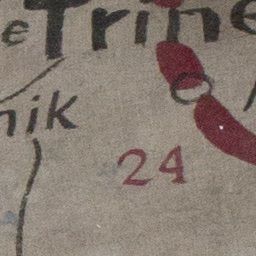 e Trine
nik
24